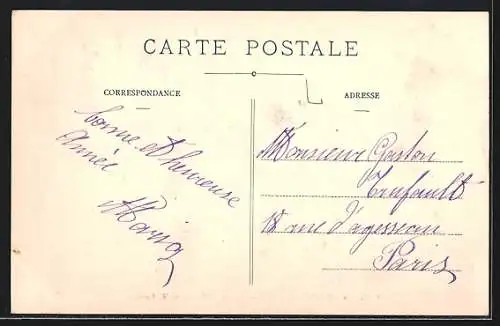 CARTE POSTALE
CORRESPONDANCE
bonne et heureuse
Année
ADRESSE
Monsieur Gaston
18 rue d'aguesseau
Paris